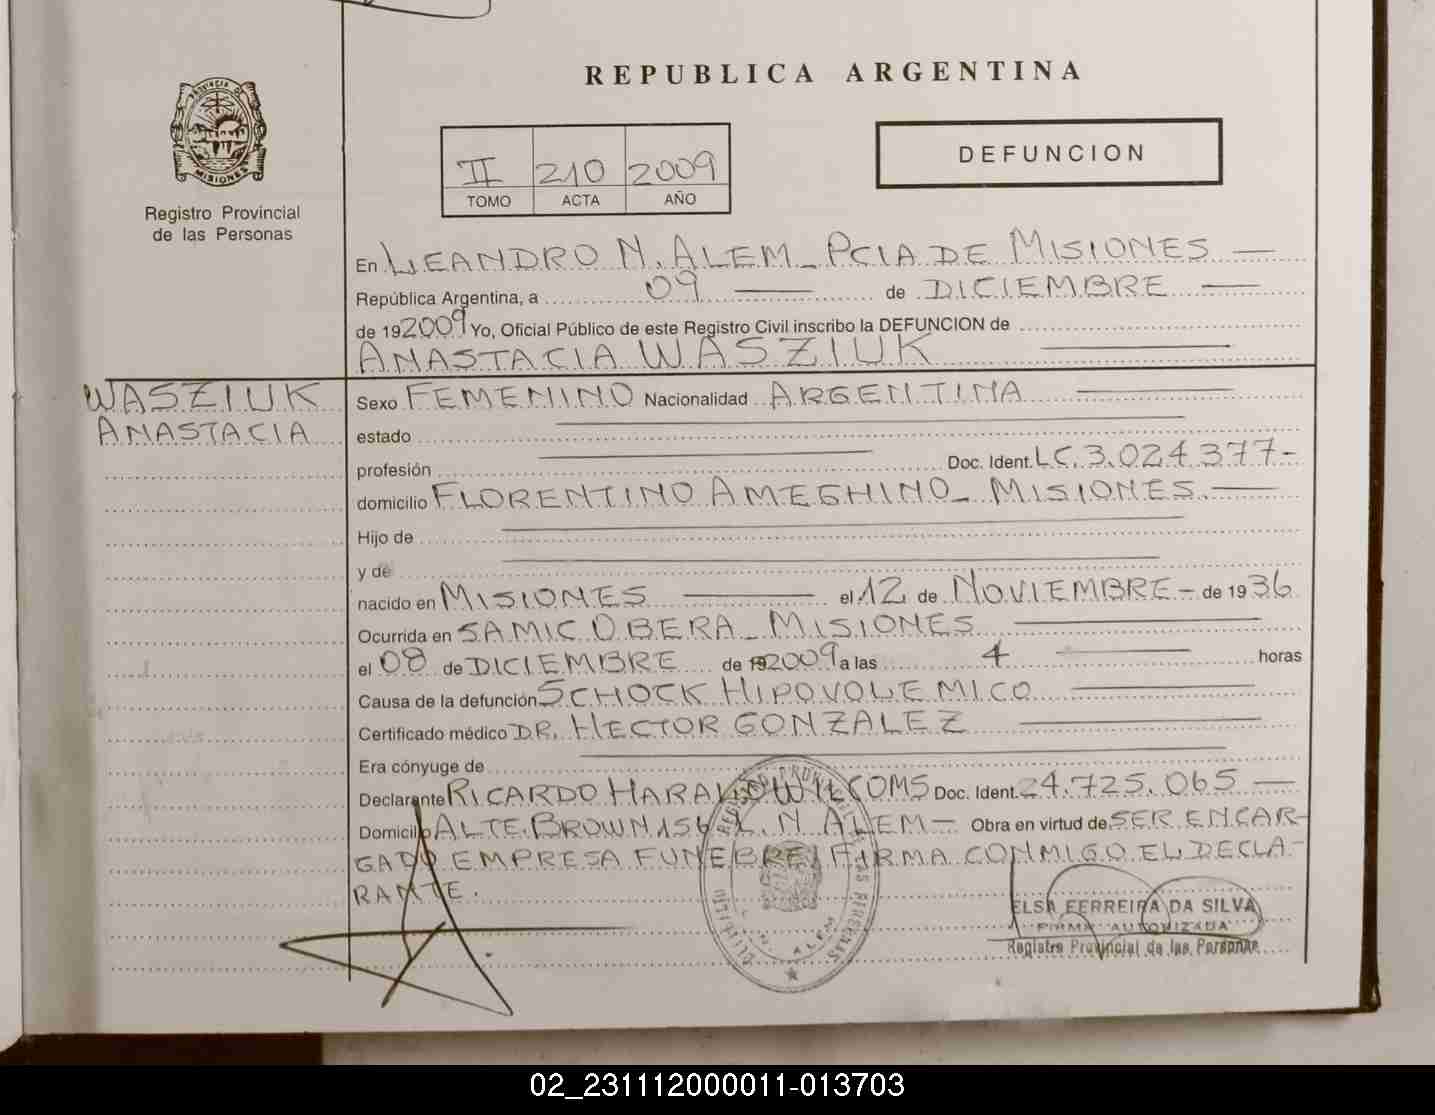 REPUBLICA ARGENTINA
PROVINCIA DE
MISIONES
Registro Provincial
de las Personas
II 210 2009
TOMO ACTA AÑO
DEFUNCION
En LEANDRO N. ALEM - PCIA DE MISIONES
República Argentina, a 09 de DICIEMBRE
de 192009 Yo, Oficial Público de este Registro Civil inscribo la DEFUNCION de
ANASTACIA WASZIUK
WASZIUK
ANASTACIA
Sexo FEMENINO Nacionalidad ARGENTINA
estado
profesión Doc. Ident. LC. 3.024.377-
domicilio FLORENTINO AMEGHINO - MISIONES
Hijo de
y de
nacido en MISIONES el 12 de NOVIEMBRE - de 1936
Ocurrida en SAMIC OBERA - MISIONES
el 08 de DICIEMBRE de 192009 a las 4 horas
Causa de la defunción SCHOCK HIPOVOLEMICO
Certificado médico DR. HECTOR GONZALEZ
Era cónyuge de
Declarante RICARDO HARALDO WILCOMS Doc. Ident. 24.725.065
Domicilio ALTE. BROWN 156 L. N. ALEM - Obra en virtud de SER ENCAR-
GADO EMPRESA FUNEBRE, FIRMA CONMIGO EL DECLA-
RANTE.
ELSA FERREIRA DA SILVA
FIRMA AUTORIZADA
Registro Provincial de las Personas
L. N. ALEM
02_231112000011-013703